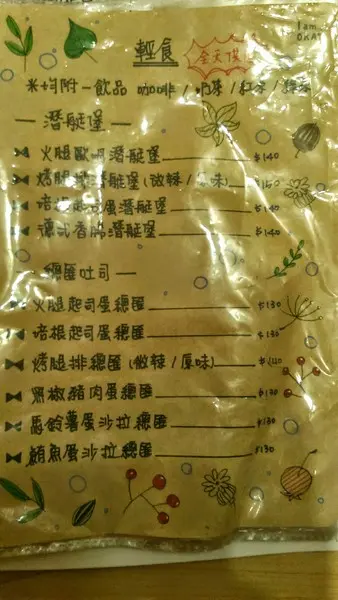 I am
OKAY
輕食
全天供應
米均附一飲品 咖啡/奶茶/紅茶/綠茶
— 潛艇堡 —
火腿歐姆潛艇堡 $140
烤腿排潛艇堡(微辣/原味) $150
培根起司蛋潛艇堡 $140
德式香腸潛艇堡 $140
— 總匯吐司 —
火腿起司蛋總匯 $130
培根起司蛋總匯 $130
烤腿排總匯(微辣/原味) $140
黑椒豬肉蛋總匯 $130
馬鈴薯蛋沙拉總匯 $130
鮪魚蛋沙拉總匯 $130